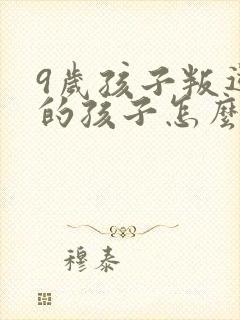 9歲孩子叛
的孩子怎麼
穆泰